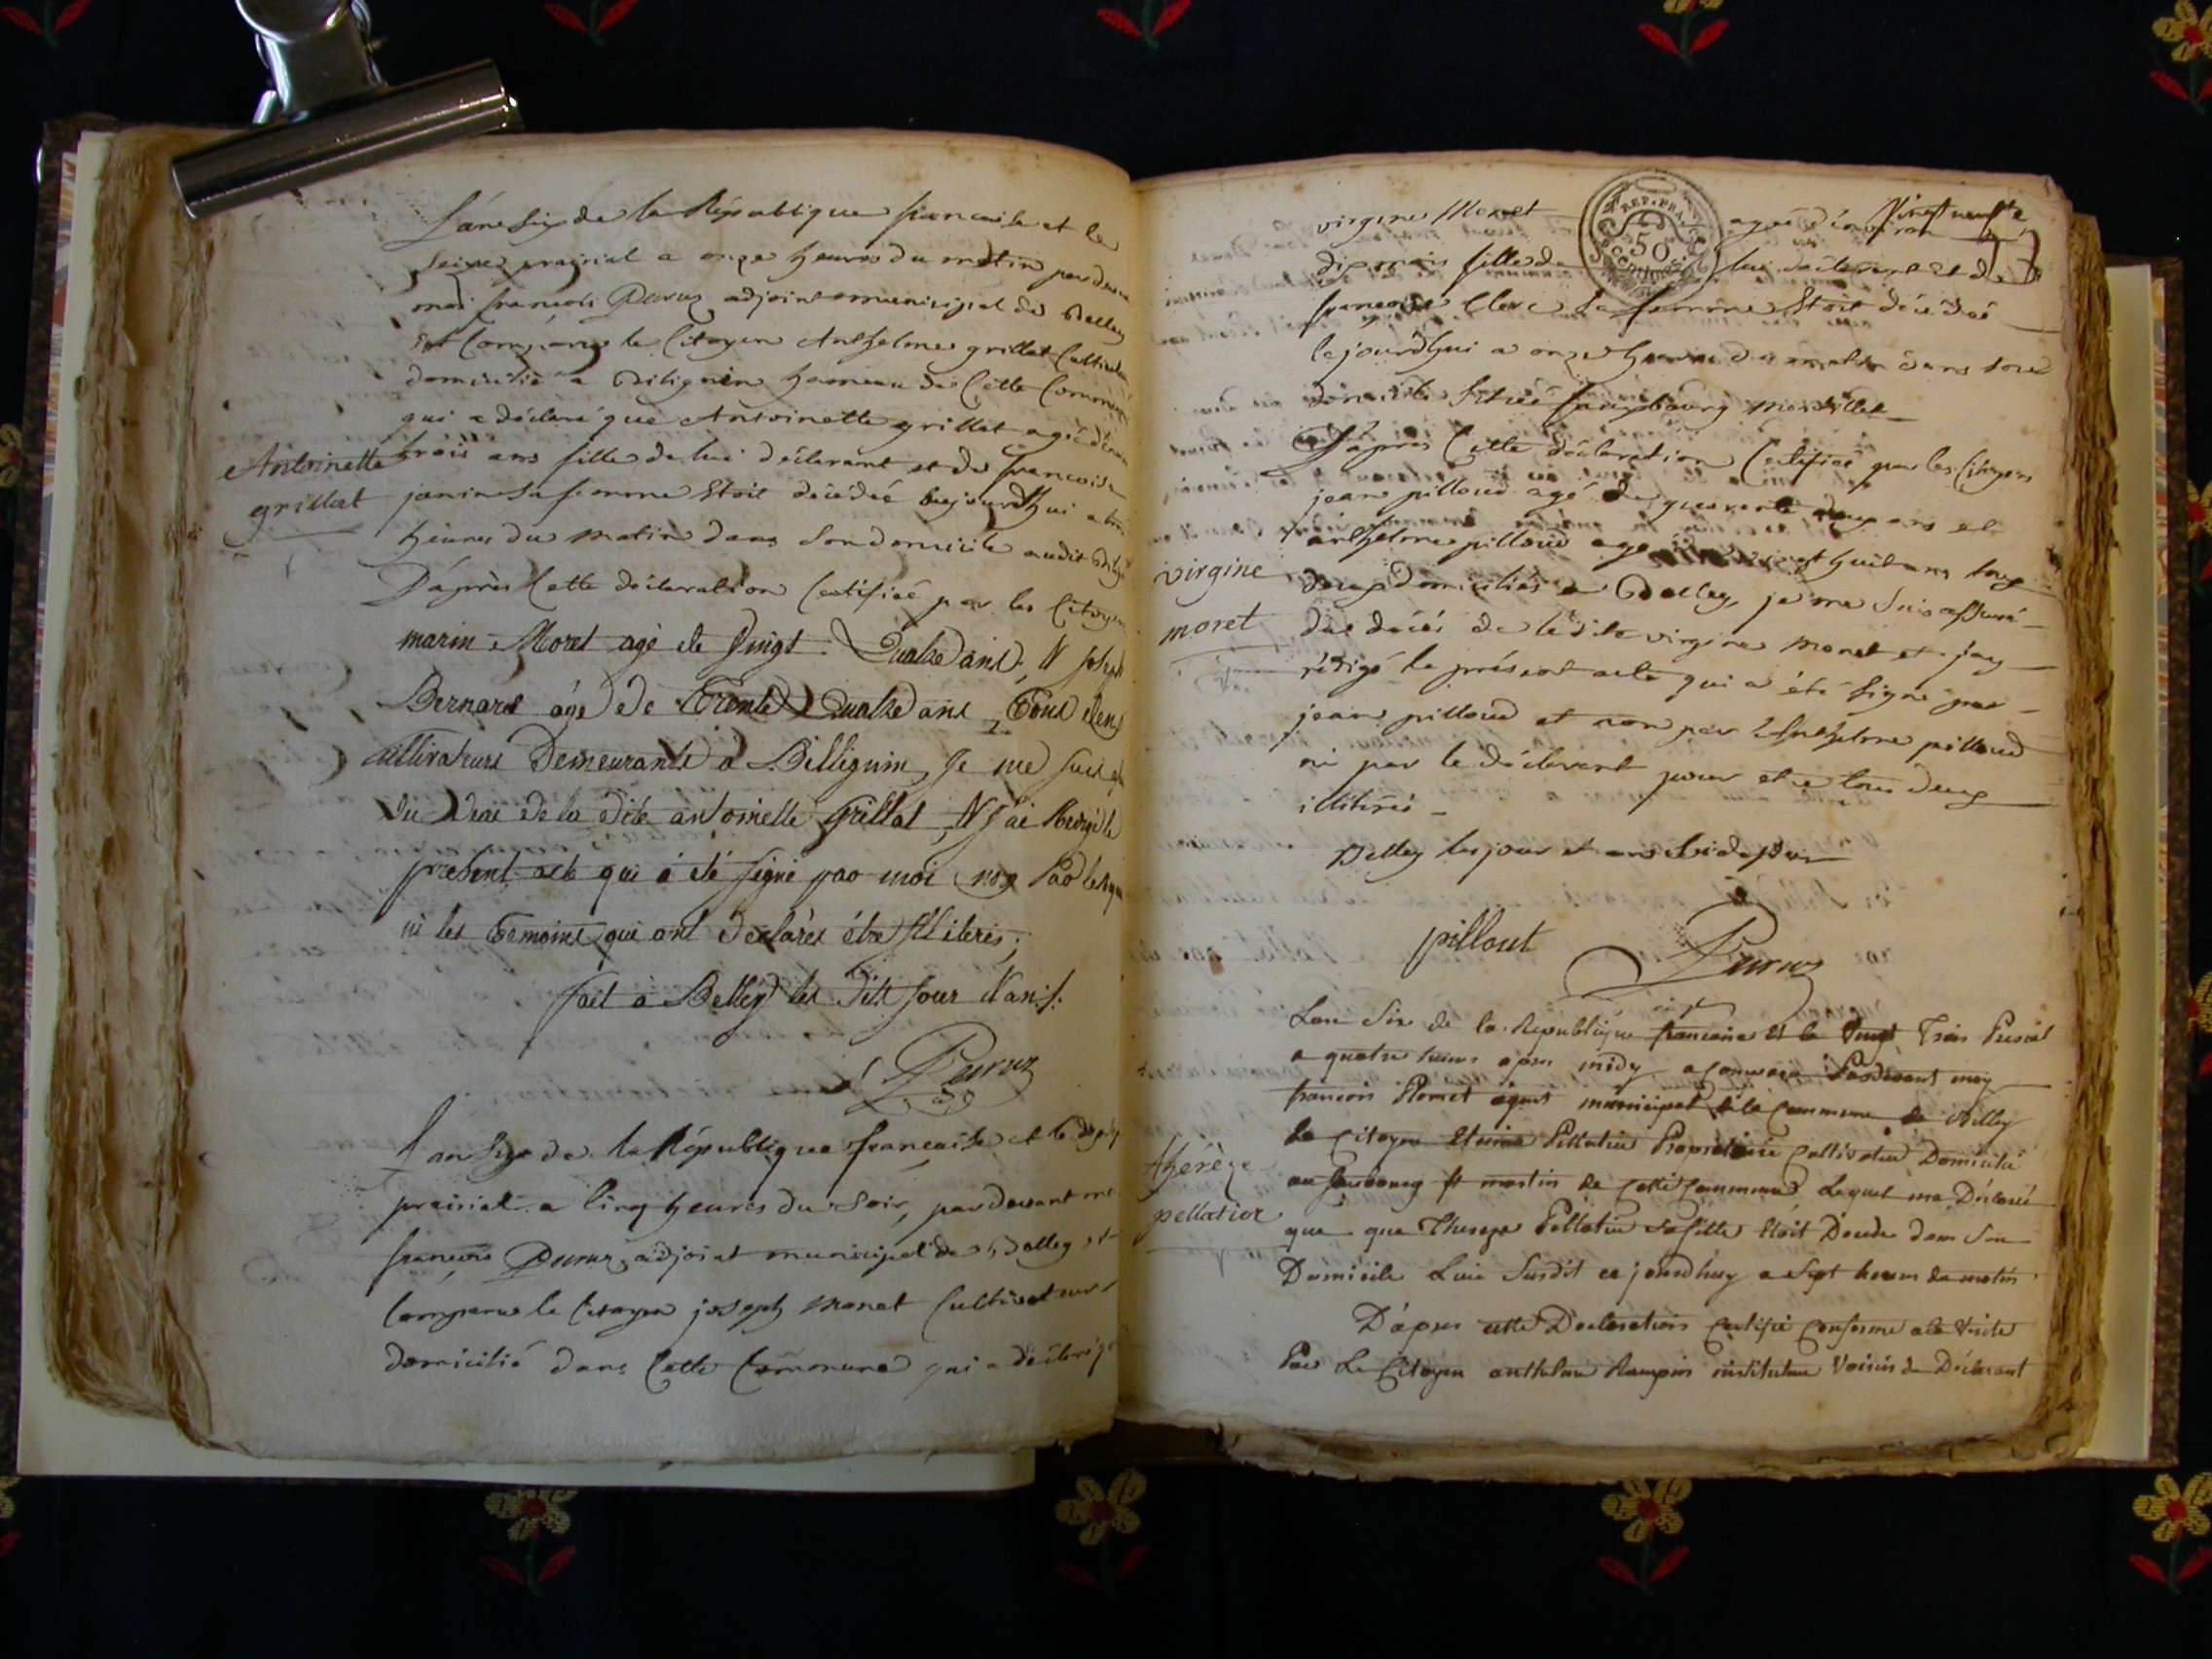 L'an six de la République francaise et le
seize prairial a onze heures du matin par devant
moi françois Peyruz adjoint municipal de Belley
est comparu le Citoyen Anthelme grillat Cultivateur
domicilié a Bilignin hameau de Cette Commune
qui a déclaré que Antoinette grillat agée d'environ
Antoinette
grillat
trois ans fille de lui déclarant et de francoise
janin sa femme Etoit décédée aujourdhui a
heures du matin dans son domicile audit
D'après Cette déclaration Certifiée par les Citoyens
marin Moret agé de Vingt Quatre ans, & joseph
Bernard agé de Trente Quatre ans, Tous deux
Cultivateurs Demeurants a Billignin, Je me suis
du de la dite antoinette Grillat, & j'ai Redigé le
présent acte qui a été signé par moi non par le
ni les Temoins qui ont declarés être illiterés;
fait a Belley les dits jour & ans.
L'an six de la République francaise et le
prairial a Cinq heures du soir, par devant moi
francois adjoint municipal de Belley est
Comparu le Citoyen joseph moret Cultivateur
domicilié dans Cette Commune qui a déclaré que
REP. FRA.
50
centimes
virgine Moret agée d'environ
dix mois fille de lui declarant et de
francoise Clerc sa femme Etoit décédée
le jourdhui a onze heures du matin dans son
domicile situé fauxbourg
D'après Cette déclaration Certifiée par les Citoyens
jean pilloud agé de quarante deux ans et
anthelme pilloud agé vingt huit ans tous
virgine
moret
deux domiciliés a Belley, je me suis assuré
du décés de ledite virgine Moret et jay
rédigé le présent acte qui a été signé par
jean pilloud et non par Anthelme pilloud
ni par le déclarant pour etre tous deux
illiterés
Belley les jour et an
pillout
Lan Six de la Republique francaise et le Vingt Trois Prerial
a quatre heures apres midy a comparu Pardevant moy
francois agent municipal de la Commune de Belley
Le Citoyen Etienne Pellatier Propriétaire Cultivateur Domicilié
au fauxbourg st martin de Cette Commune Lequel ma Déclaré
Thérèze
pellatier
que que Thereze Pellatier sa fille Etoit Decedee dans Son
Domicile Lieu Susdit ce jourdhuy a Sept heures du matin
D'apres cette Declaration Certifié Conforme a la Verité
Par Le Citoyen anthelme instituteur Voisin du Déclarant